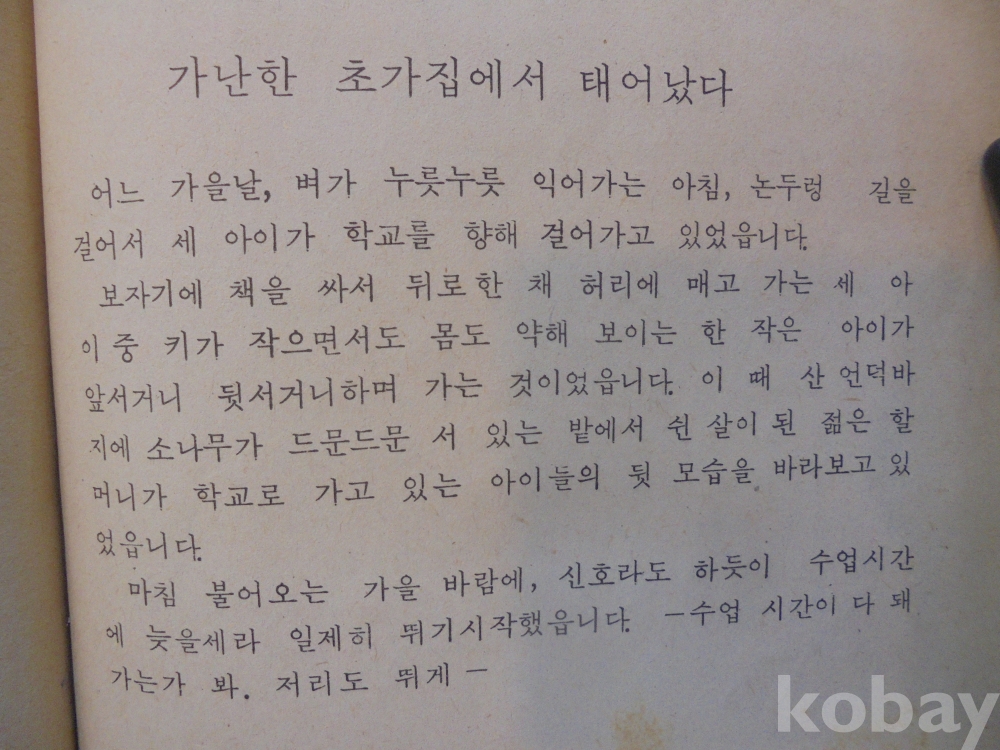 가난한 초가집에서 태어났다
어느 가을날, 벼가 누릇누릇 익어가는 아침, 논두렁 길을
걸어서 세 아이가 학교를 향해 걸어가고 있었읍니다.
보자기에 책을 싸서 뒤로한 채 허리에 매고 가는 세 아
이 중 키가 작으면서도 몸도 약해 보이는 한 작은 아이가
앞서거니 뒷서거니하며 가는 것이었읍니다. 이 때 산 언덕바
지에 소나무가 드문드문 서 있는 밭에서 쉰 살이 된 젊은 할
머니가 학교로 가고 있는 아이들의 뒷 모습을 바라보고 있
었읍니다.
마침 불어오는 가을 바람에, 신호라도 하듯이 수업시간
에 늦을세라 일제히 뛰기시작했읍니다. —수업 시간이 다 돼
가는가 봐. 저리도 뛰게 —
kobay